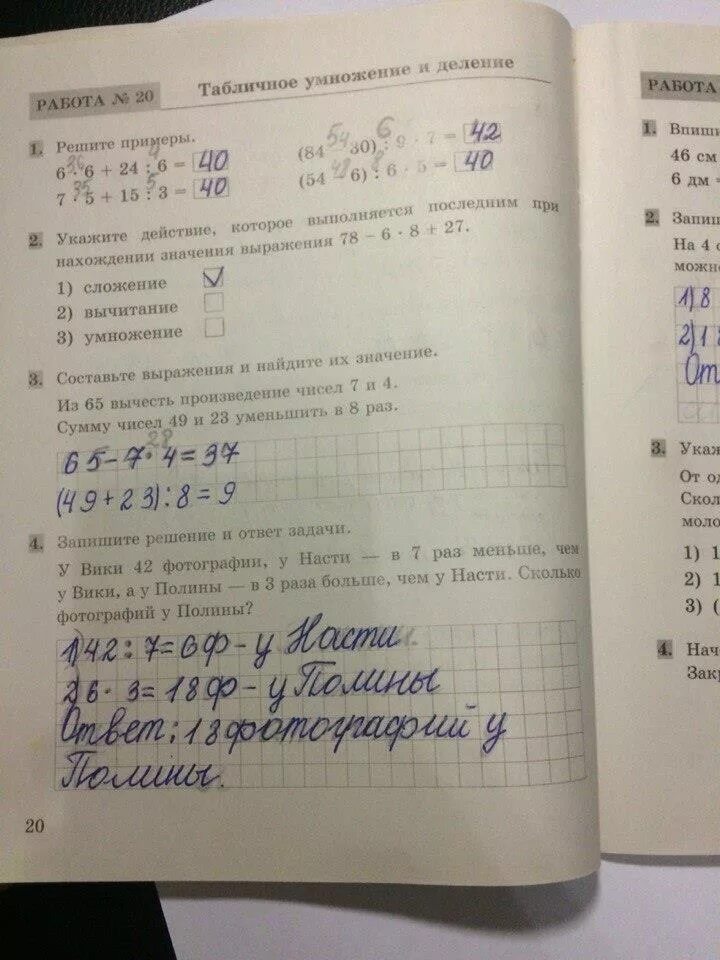 РАБОТА № 20
Табличное умножение и деление
1. Решите примеры.
36 4
6 · 6 + 24 : 6 = 40
35 5
7 · 5 + 15 : 3 = 40
54 6
(84 − 30) : 9 · 7 = 42
48 8
(54 − 6) : 6 · 5 = 40
2. Укажите действие, которое выполняется последним при
нахождении значения выражения 78 – 6 · 8 + 27.
1) сложение
2) вычитание
3) умножение
3. Составьте выражения и найдите их значение.
Из 65 вычесть произведение чисел 7 и 4.
Сумму чисел 49 и 23 уменьшить в 8 раз.
28
65–7·4=37
(49+23):8=9
4. Запишите решение и ответ задачи.
У Вики 42 фотографии, у Насти — в 7 раз меньше, чем
у Вики, а у Полины — в 3 раза больше, чем у Насти. Сколько
фотографий у Полины?
1)42:7=6ф-у Насти
2)6·3=18ф-у Полины
Ответ:18фотографий у
Полины.
20
РАБОТА
1. Впиши
46 см
6 дм =
2. Запиш
На 4 с
можно
1)8
2)18
От
3. Укаж
От од
Скол
моло
1) 1
2) 1
3) (
4. Нач
Закр